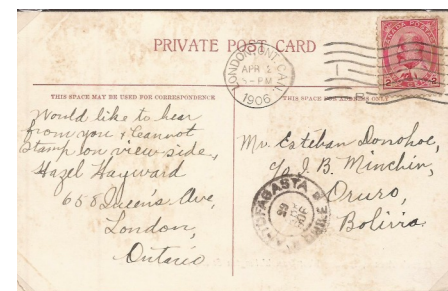 PRIVATE POST CARD
LONDON, ONT. CAN.
APR 2
PM
1906
THIS SPACE MAY BE USED FOR CORRESPONDENCE
THIS SPACE FOR ADDRESS ONLY
Would like to hear
from you & cannot
Stamp on view side,
Hazel Hayward
658 Queen's Ave,
London,
Ontario
Mr. Esteban Donohoe,
c/o J. B. Minchin,
Oruro,
Bolivia
ANTOFAGASTA
CHILE
2